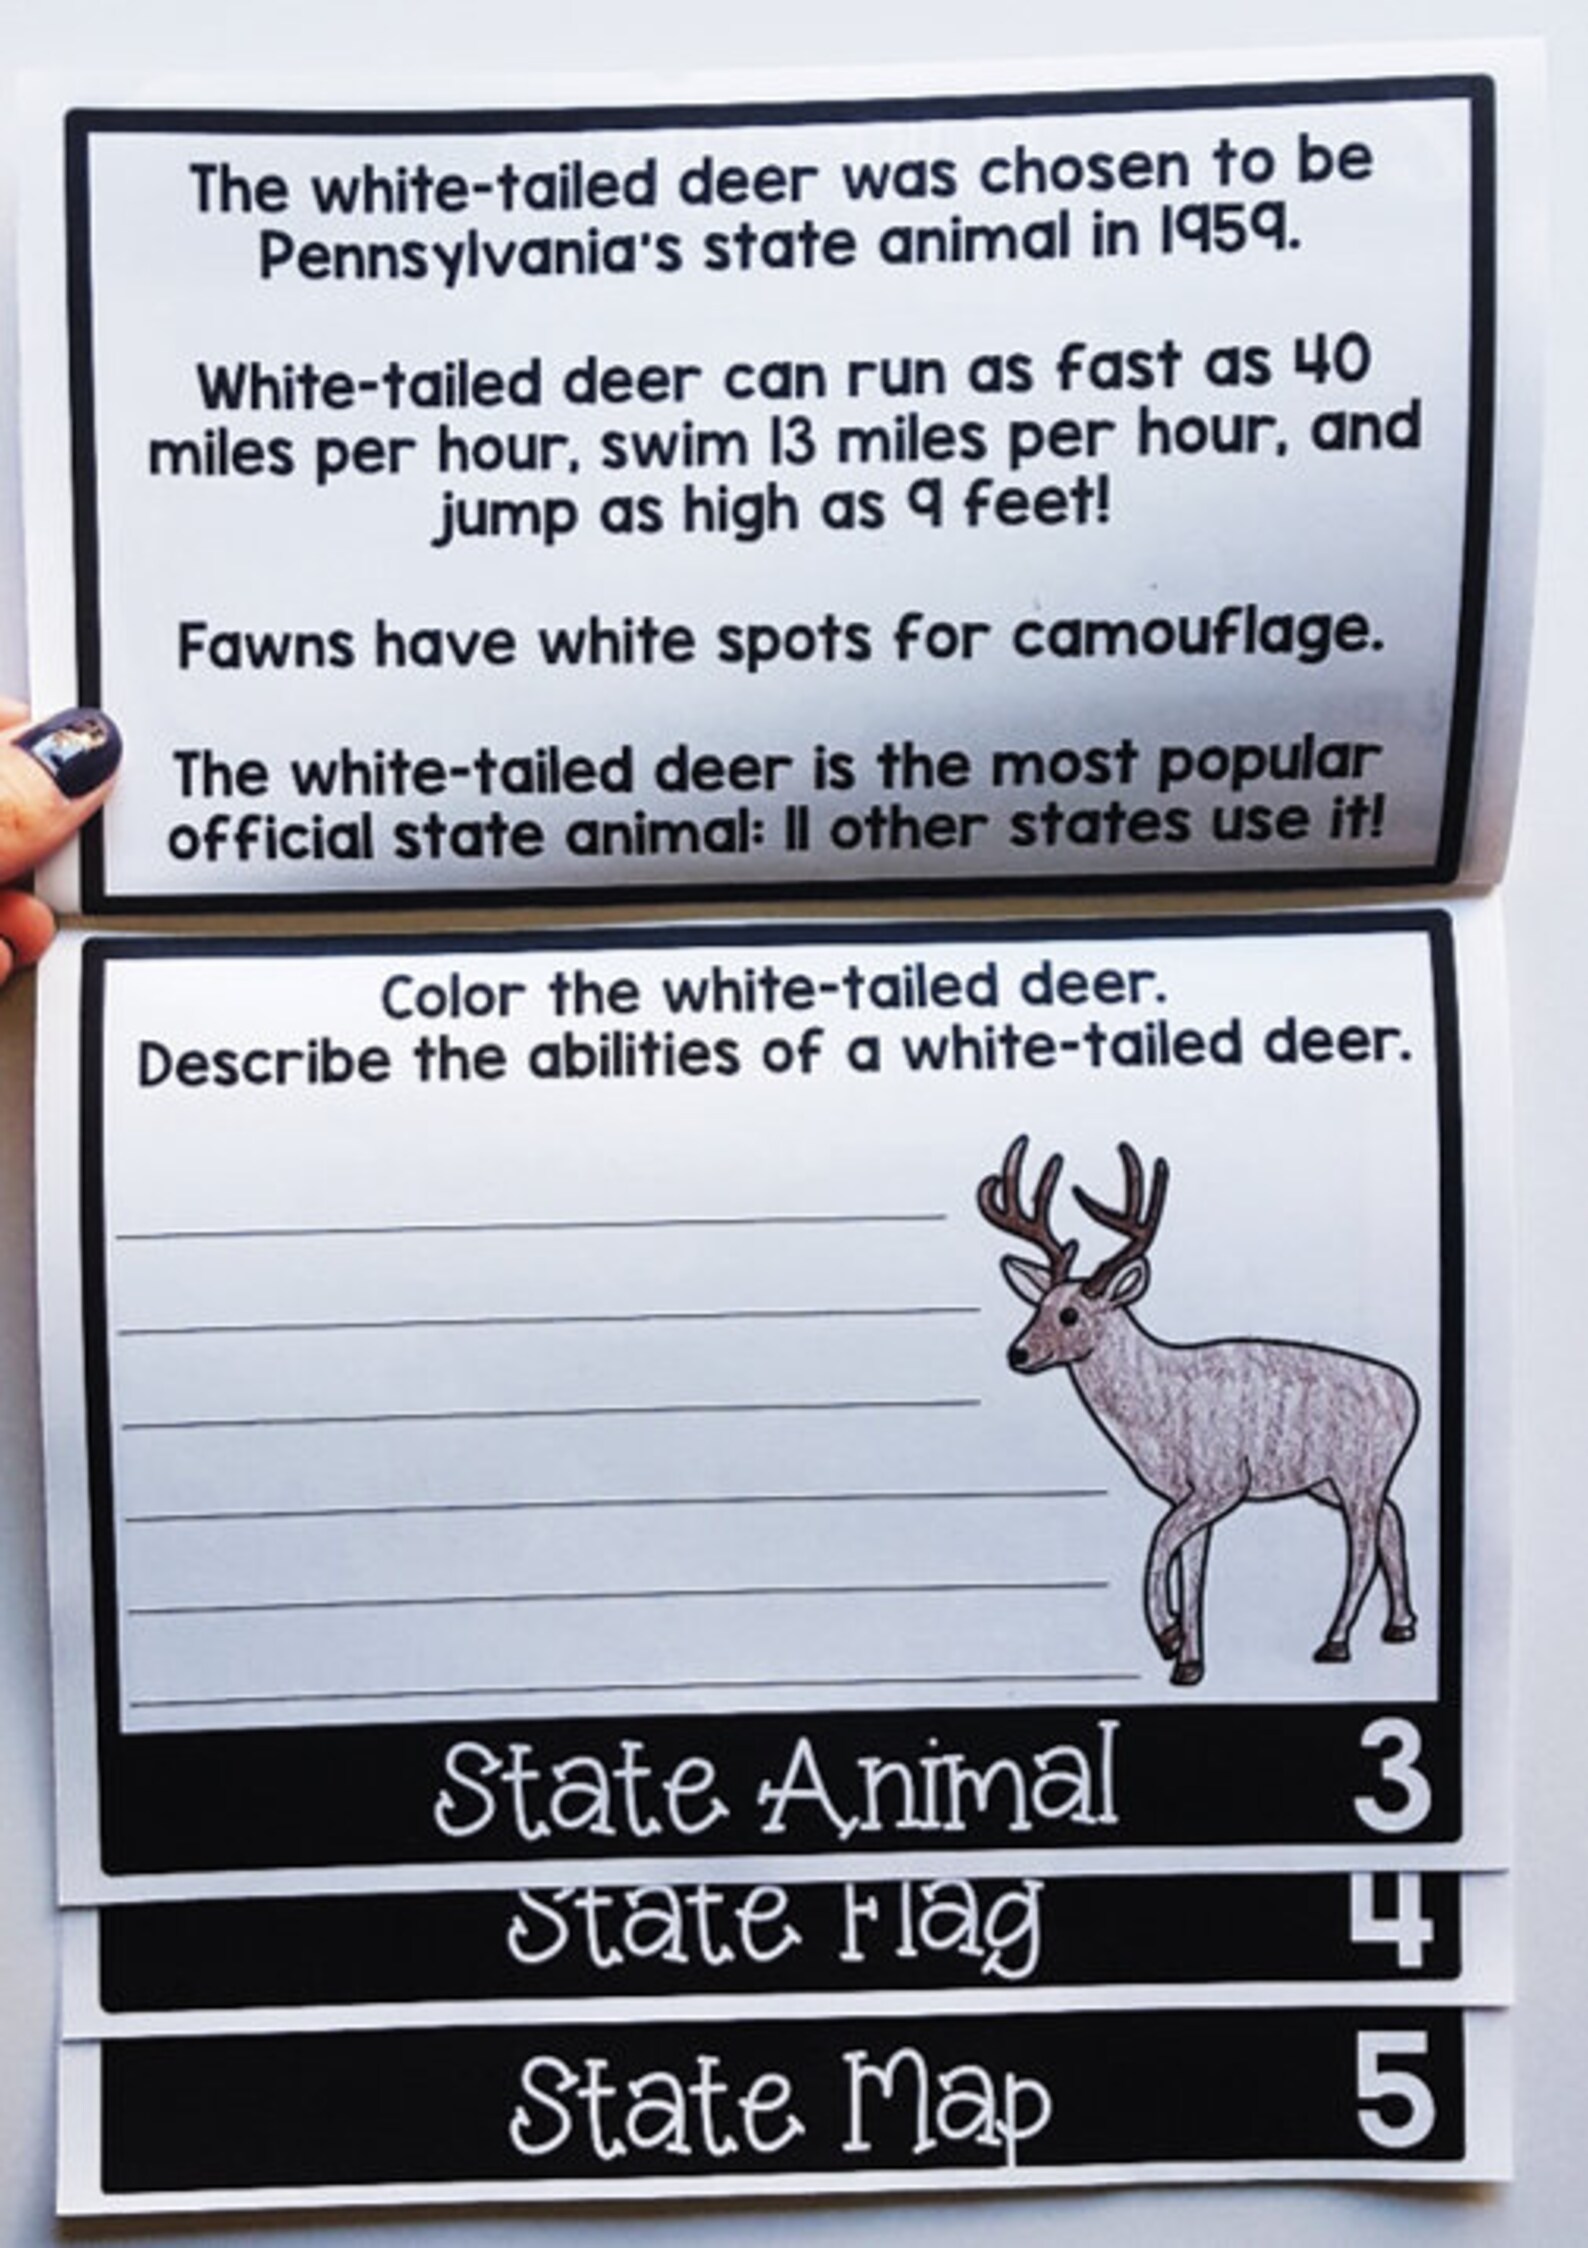 The white-tailed deer was chosen to be
Pennsylvania's state animal in 1959.
White-tailed deer can run as fast as 40
miles per hour, swim 13 miles per hour, and
jump as high as 9 feet!
Fawns have white spots for camouflage.
The white-tailed deer is the most popular
official state animal: 11 other states use it!
Color the white-tailed deer.
Describe the abilities of a white-tailed deer.
State Animal 3
State Flag 4
State Map 5